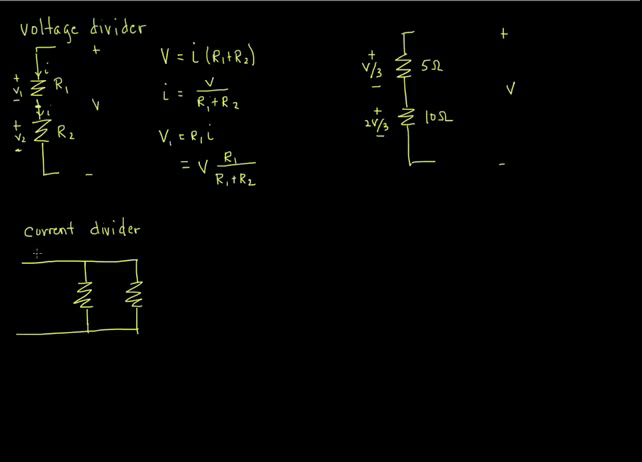 voltage divider
+
i
+
V₁
-
R₁
i
V
+
V₂
-
R₂
-
V = i (R₁+R₂)
i = V / R₁+R₂
V₁ = R₁ i
= V R₁ / R₁+R₂
+
V/3
-
5Ω
+
V
+
2V/3
-
10Ω
-
current divider